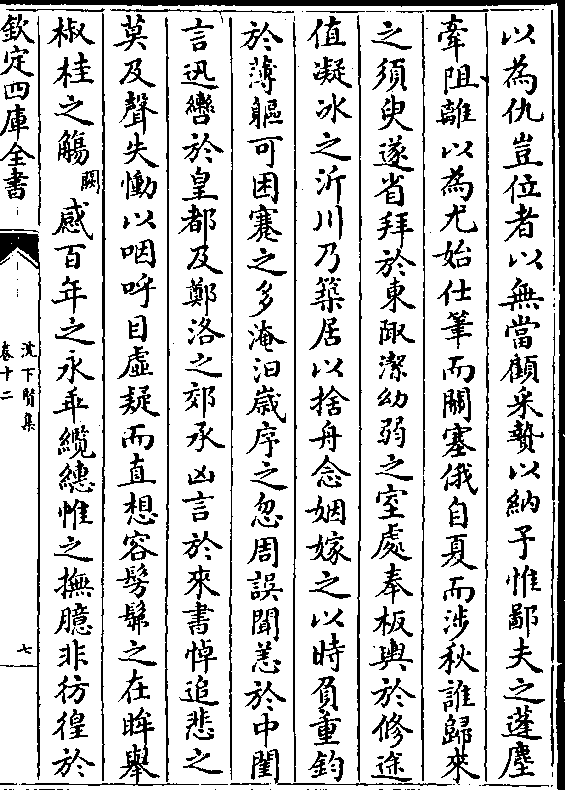 以為仇豈位者以無當顧采贄以納予惟鄙夫之蓬塵
牽阻離以為尤始仕筆而關塞俄自夏而涉秋誰歸來
之須臾遂省拜於東陬潔幼弱之室處奉板輿於修途
值凝冰之沂川乃築居以捨舟念姻嫁之以時負重鈞
於薄軀可困蹇之多淹汩歲序之忽周誤聞恙於中閨
言迅轡於皇都及鄭洛之郊承凶言於來書悼追悲之
莫及聲失慟以咽呼目虛疑而直想容髣髴之在眸舉
椒桂之觴闕感百年之永乖纜繐惟之撫臆非彷徨於
欽定四庫全書
沈下賢集
卷十二
七